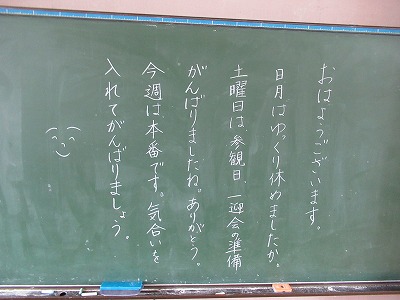 おはようございます。
日月はゆっくり休めましたか。
土曜日は参観日、一迎会の準備
がんばりましたね。ありがとう。
今週は本番です。気合いを
入れてがんばりましょう。